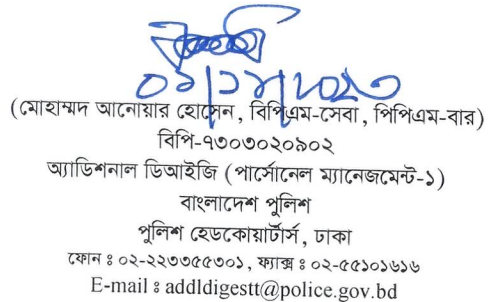 ০১/১২/২০২৩
(মোহাম্মদ আনোয়ার হোসেন, বিপিএম-সেবা, পিপিএম-বার)
বিপি-৭৩০৩০২০৯০২
অ্যাডিশনাল ডিআইজি (পার্সোনেল ম্যানেজমেন্ট-১)
বাংলাদেশ পুলিশ
পুলিশ হেডকোয়ার্টার্স, ঢাকা
ফোন ঃ ০২-২২৩৩৫৫৩০১, ফ্যাক্স ঃ ০২-৫৫১০১৬১৬
E-mail ঃ addldigestt@police.gov.bd